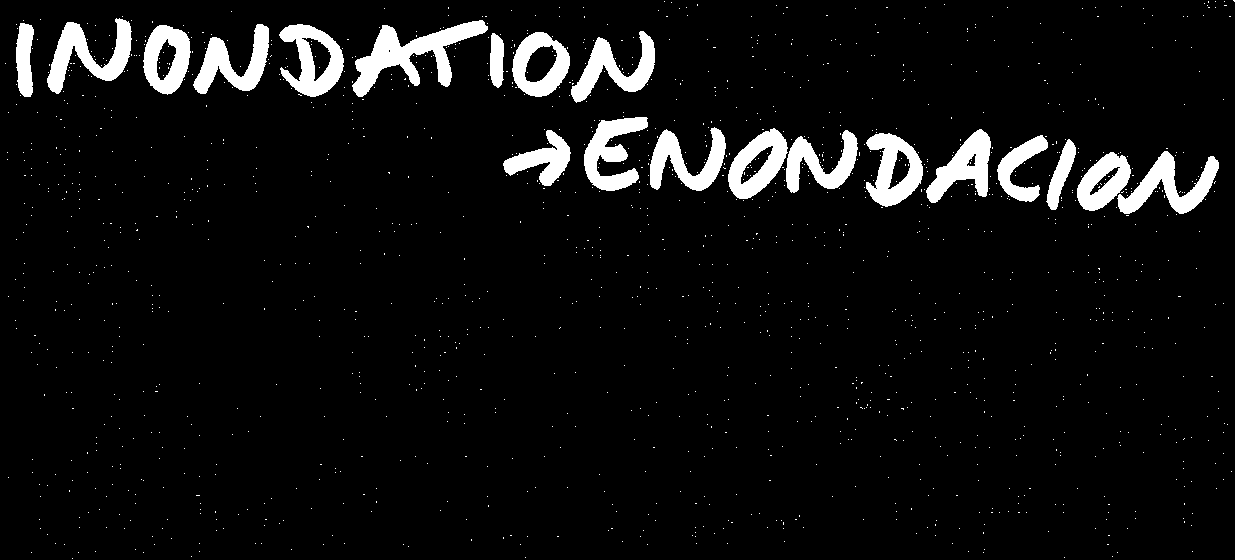 INONDATION
→ENONDACION